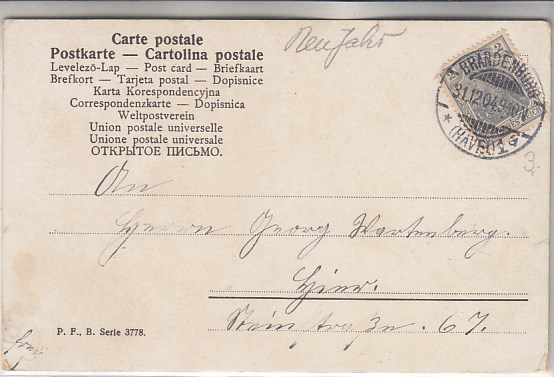 Carte postale
Postkarte — Cartolina postale
Levelezö-Lap — Post card — Briefkaart
Brefkort — Tarjeta postal — Dopisnice
Karta Korespondencyjna
Correspondenzkarte — Dopisnica
Weltpostverein
Union postale universelle
Unione postale universale
ОТКРЫТОЕ ПИСЬМО.
Neujahr
BRANDENBURG
31.12.04.9-10
* (HAVEL) 1 g
3,
An
Herrn Georg Wartenberg.
Hier.
Steinstraße. 67.
P. F., B. Serie 3778.